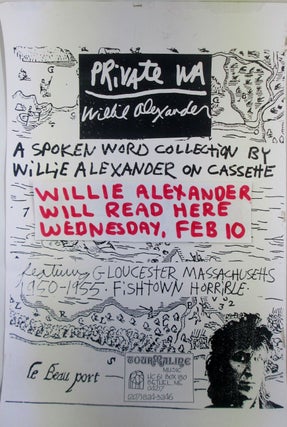 PRIVATE WA
Willie Alexander
A SPOKEN WORD COLLECTION BY
WILLIE ALEXANDER ON CASSETTE
WILLIE ALEXANDER
WILL READ HERE
WEDNESDAY, FEB 10
GLOUCESTER MASSACHUSETTS
1950-1955. FISHTOWN HORRIBLE.
le Beau port
TOURMALINE
MUSIC
HC 61 BOX 180
BETHEL, ME
04217